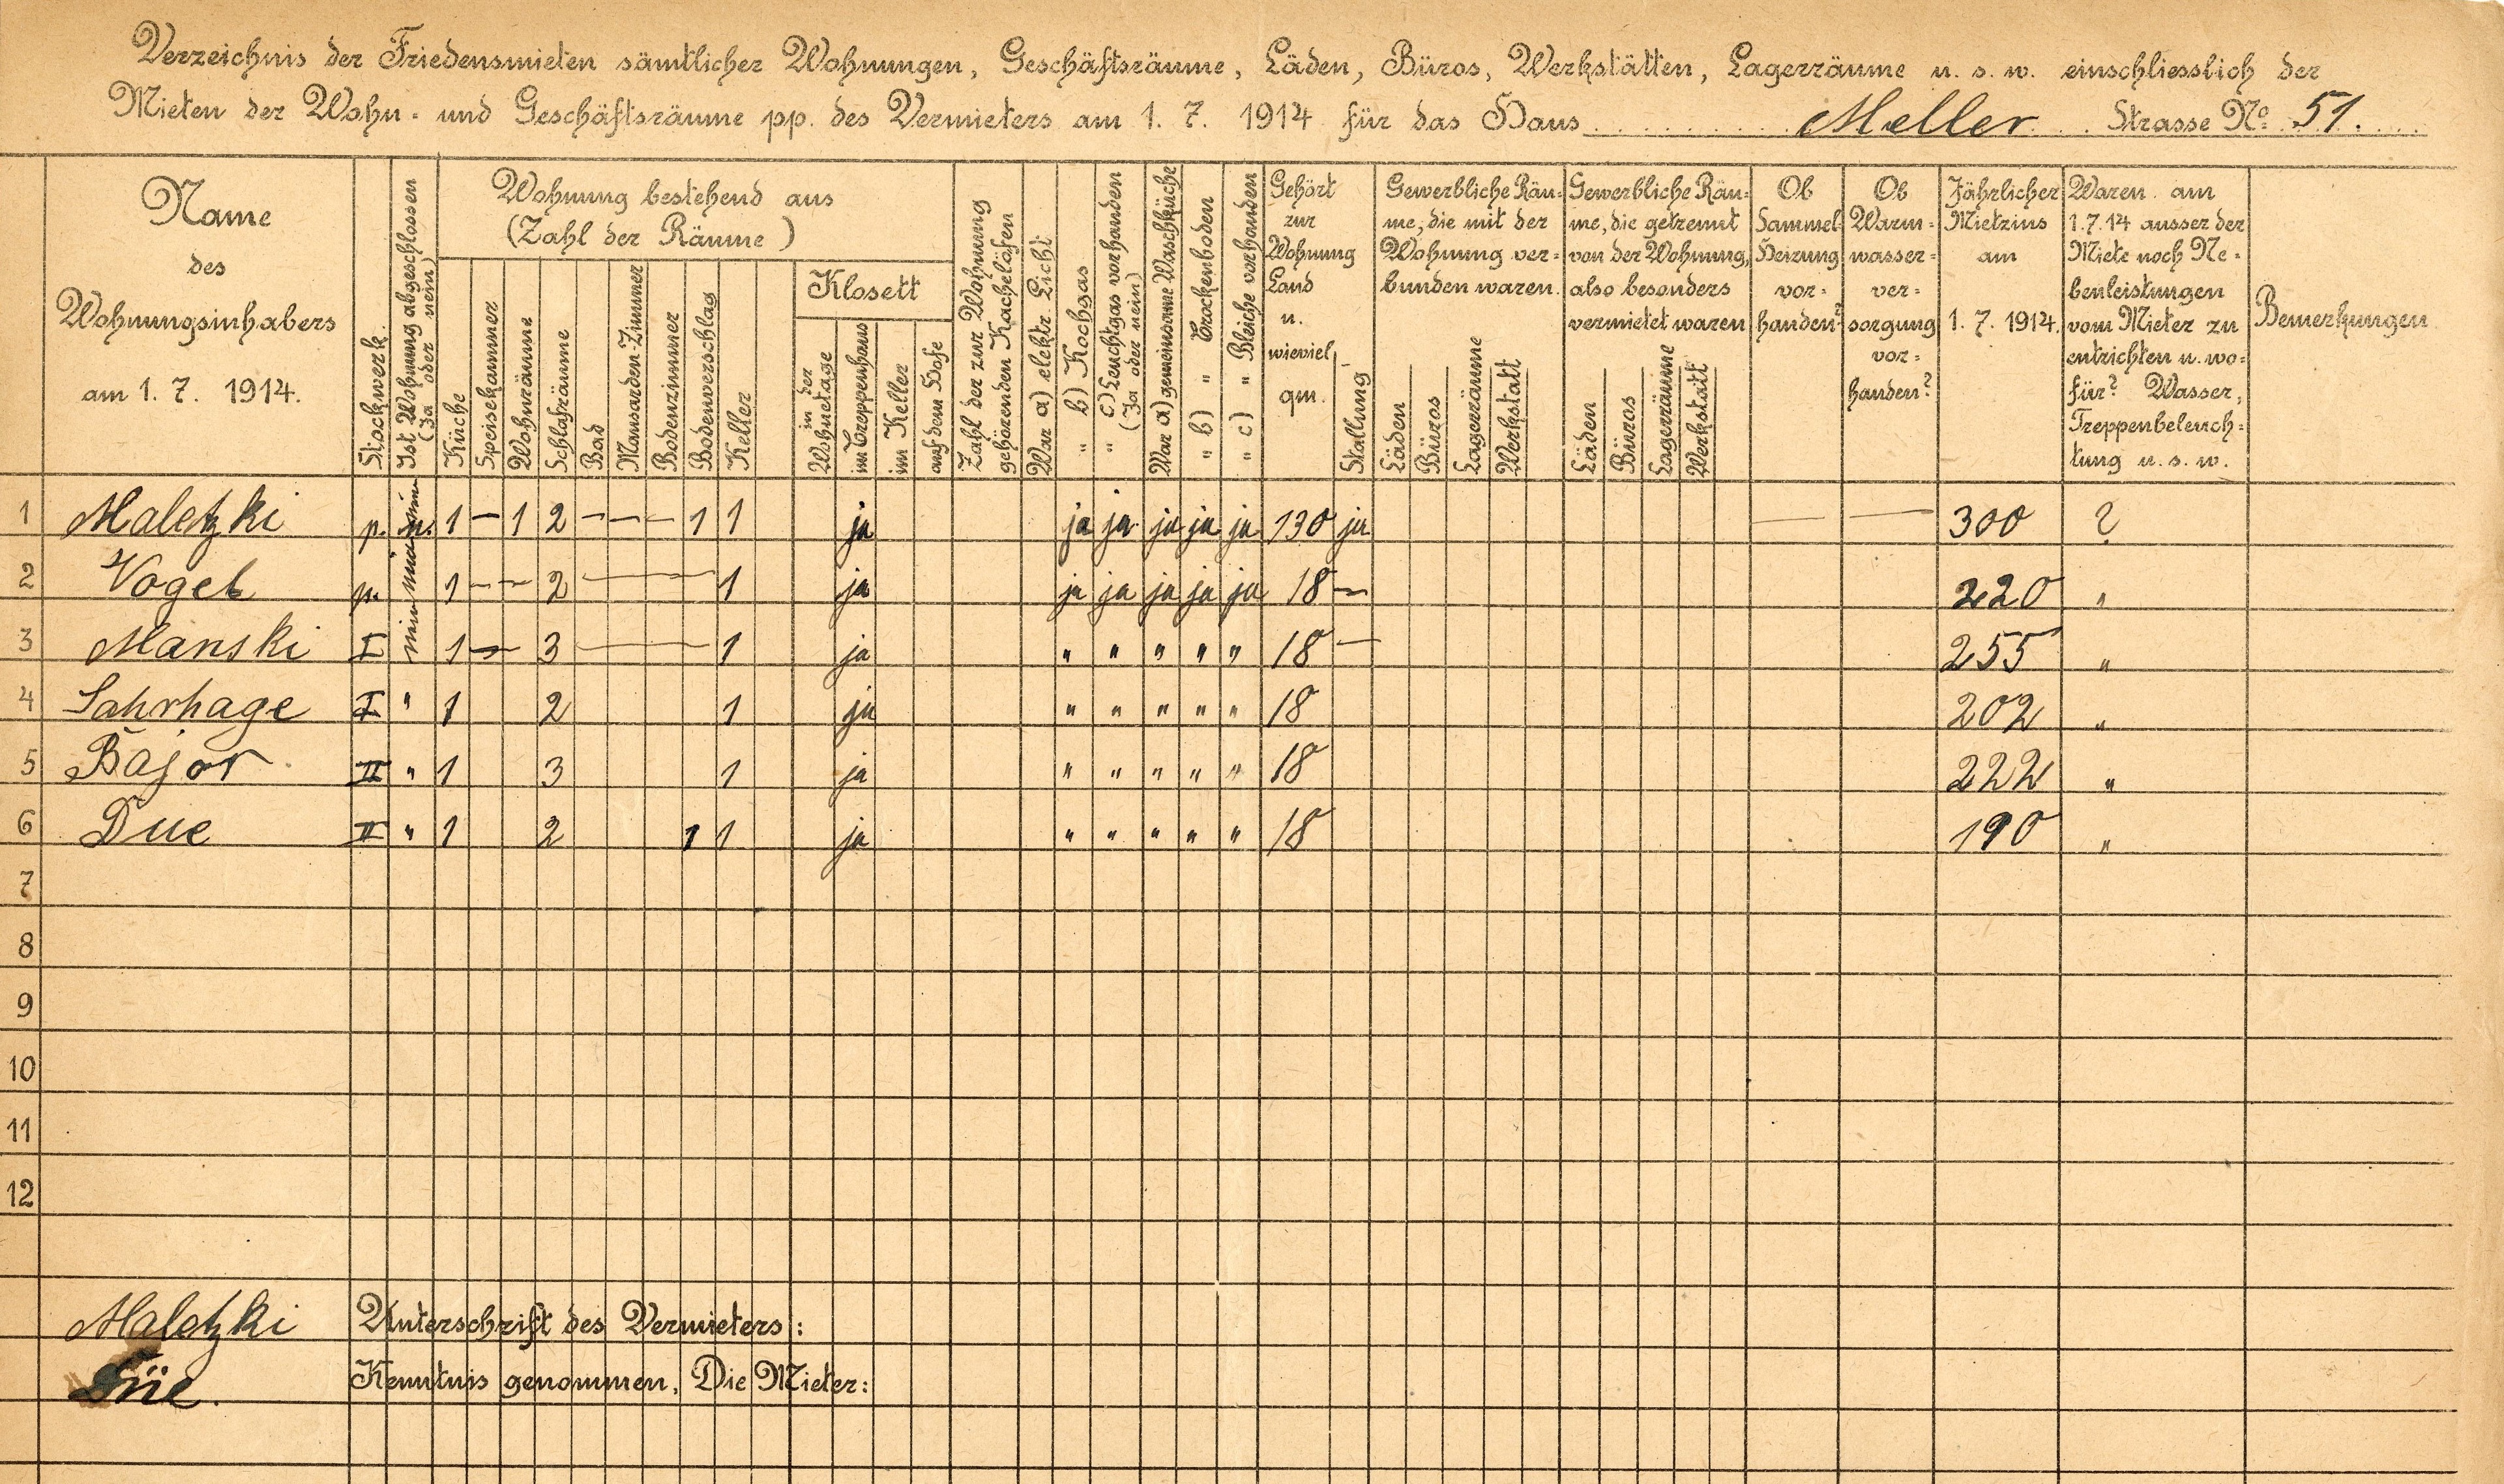 Verzeichnis der Friedensmieten sämtlicher Wohnungen, Geschäftsräume, Läden, Büros, Werkstätten, Lagerräume u. s. w. einschliesslich der
Mieten der Wohn- und Geschäftsräume pp. des Vermieters am 1. 7. 1914 für das Haus Meller Strasse No 51.
Name
des
Wohnungsinhabers
am 1. 7. 1914.
Stockwerk.
Ist Wohnung abgeschlossen
(Ja oder nein)
Wohnung bestehend aus
(Zahl der Räume)
Küche
Speisekammer
Wohnräume
Schlafräume
Bad
Mansarden-Zimmer
Bodenzimmer
Bodenverschlag
Keller
Klosett
in der
Wohnetage
im Treppenhaus
im Keller
auf dem Hofe
Zahl der zur Wohnung
gehörenden Kachelöfen
War a) elektr. Licht
" b) Kochgas
" c) Leuchtgas vorhanden
(Ja oder nein)
War a) gemeinsame Waschküche
" b) " Trockenboden
" c) " Bleiche vorhanden
Gehört
zur
Wohnung
Land
u.
wieviel
qm.
Stallung
Gewerbliche Räu-
me, die mit der
Wohnung ver-
bunden waren.
Läden
Büros
Lagerräume
Werkstatt
Gewerbliche Räu-
me, die getrennt
von der Wohnung,
also besonders
vermietet waren
Läden
Büros
Lagerräume
Werkstatt
Ob
Sammel-
Heizung
vor-
handen?
Ob
Warm-
wasser-
ver-
sorgung
vor-
handen?
Jährlicher
Mietzins
am
1. 7. 1914.
Waren am
1.7.14 ausser der
Miete noch Ne-
benleistungen
vom Mieter zu
entrichten u. wo-
für? Wasser,
Treppenbeleuch-
tung u. s. w.
Bemerkungen
1 Maletzki p. n. 1 — 1 2 — — — 1 1 ja ja ja ja ja ja 130 ja — — 300 ?
2 Vogel p. nein 1 — — 2 — 1 ja ja ja ja ja ja 18 — 220 "
3 Manski I nein 1 — 3 — 1 ja " " " " " 18 — 255 "
4 Sahrhage I " 1 2 1 ja " " " " " 18 202 "
5 Bajor II " 1 3 1 ja " " " " " 18 222 "
6 Due II " 1 2 1 1 ja " " " " " 18 190 "
7
8
9
10
11
12
Maletzki Unterschrift des Vermieters:
Düe. Kenntnis genommen. Die Mieter: